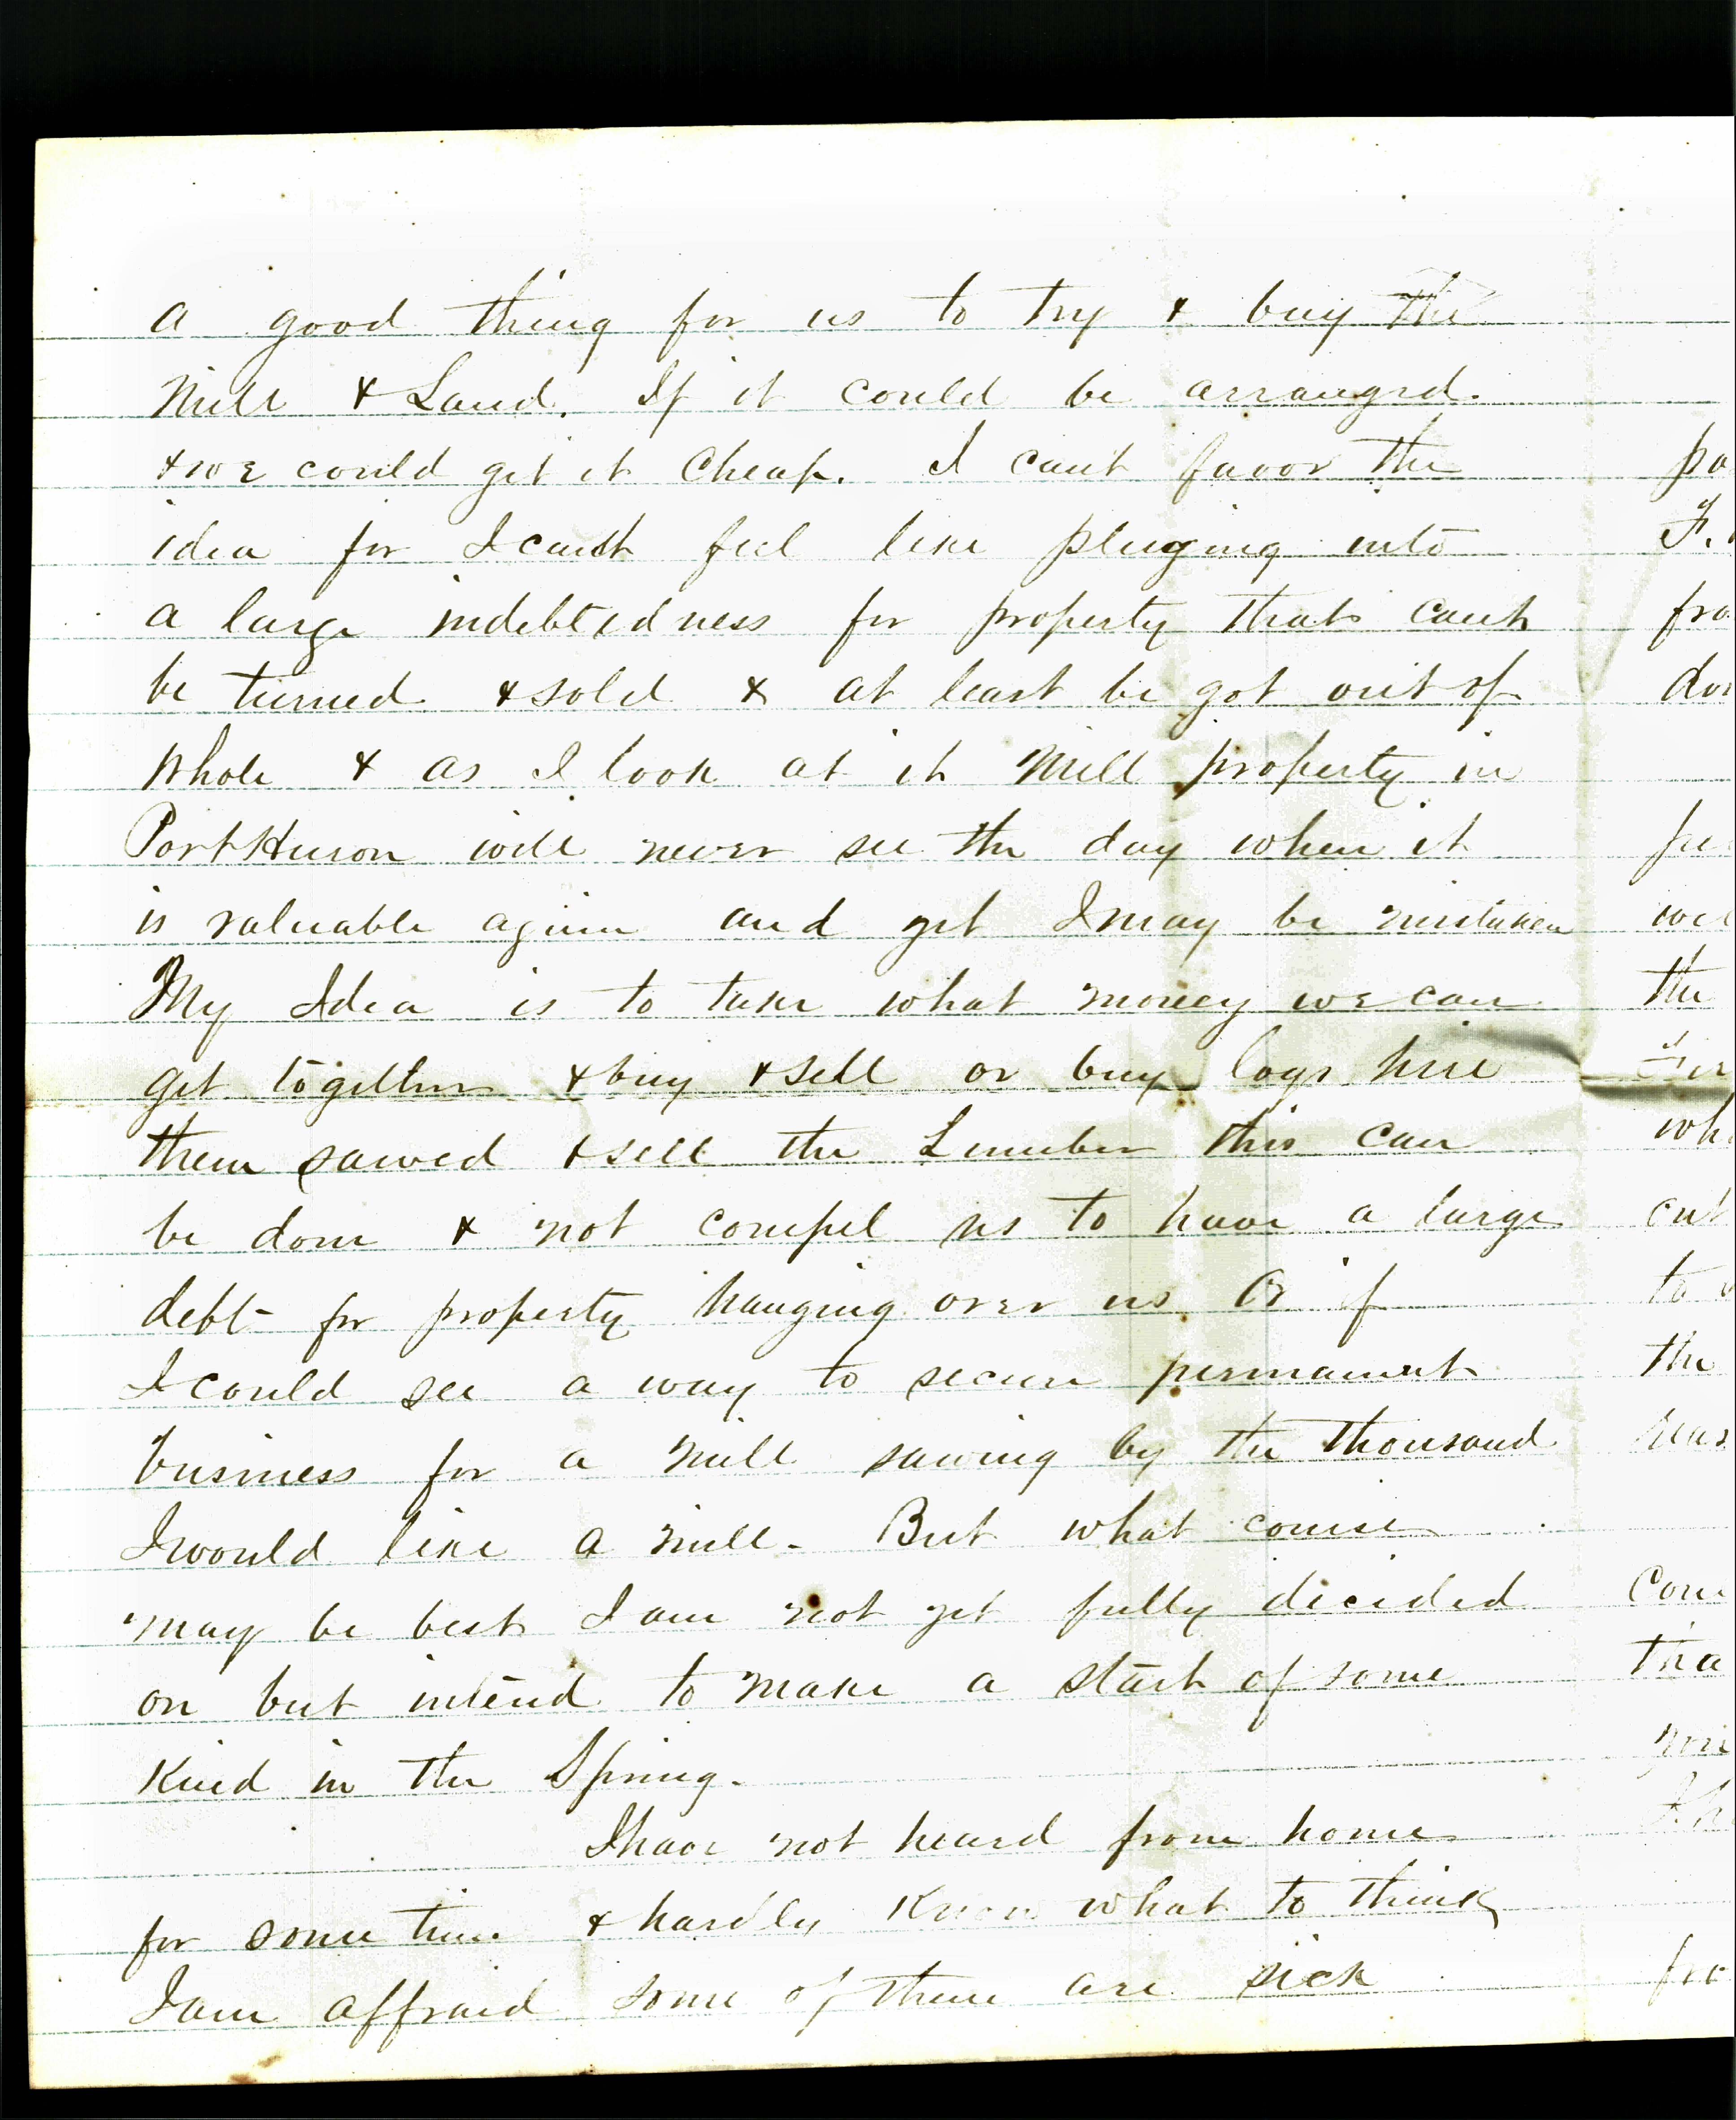 a good thing for us to try & buy the
Mill & Land. If it could be arranged.
& we could get it Cheap. I cant favor the
idea for I cant feel like pluging into
a large indebtedness for property that cant
be turned & sold & at least be got out of
whole & as I look at it Mill property in
Port Huron will never see the day when it
is valuable again and yet I may be mistaken
My Idea is to take what money we can
get together & buy & sell or buy logs hire
them sawed & sell the Lumber this can
be done & not compel us to have a large
debt for property hanging over us. Or if
I could see a way to secure permanent
business for a mill sawing by the thousand
I would like a mill. But what course
may be best I am not yet fully decided
on but intend to make a start of some
Kind in the Spring.
I have not heard from home
for some time & hardly Know what to think
I am affraid some of them are sick